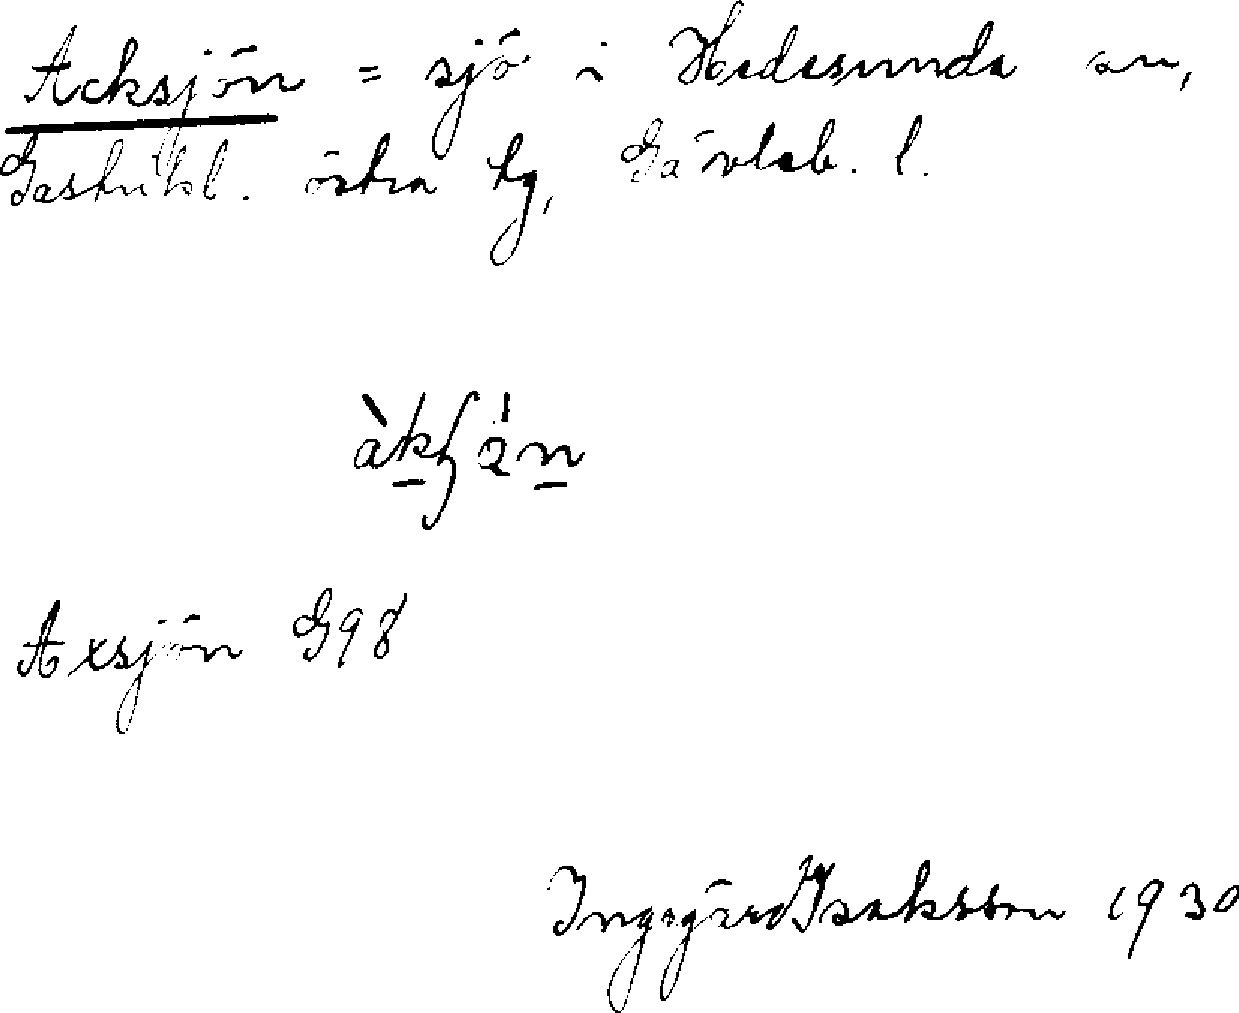 Acksjön = sjö i Hedesunda sn,
Gästrikl. östra tg, Gävleb. l.
Axsjön G98
Ingegärd Isaksson 1930